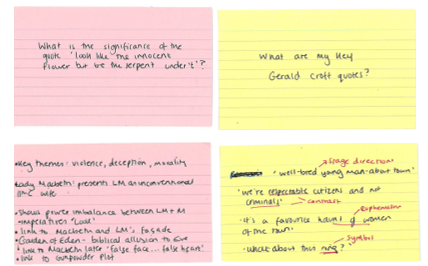 What is the significance of the
quote 'look like the innocent
flower but be the serpent under't'?
What are my key
Gerald Croft quotes?
• Key themes: violence, deception, morality
Lady Macbeth: presents LM as unconventional
wife
• Shows power imbalance between LM + M
imperative 'Look'
• link to Macbeth and LM's façade
• Garden of Eden - biblical allusion to Eve
• link to Macbeth later 'false face... false heart'
• link to Gunpowder Plot
stage direction
'well-bred young man-about-town'
'we're respectable citizens and not
criminals' contrast
euphemism
'it's a favourite haunt of women
of the town'
symbol
'What about this ring?'